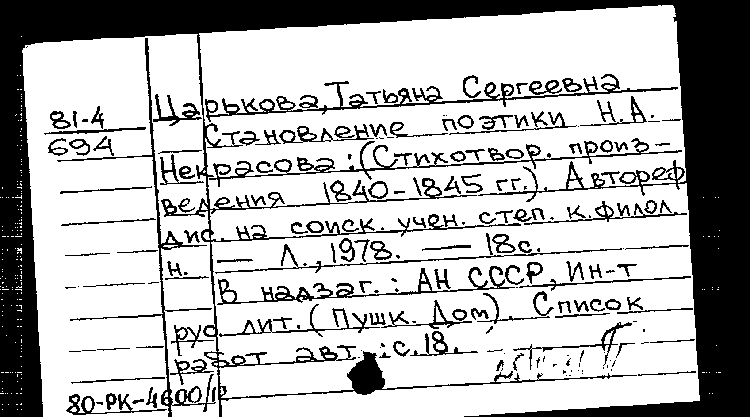 81-4
694
Царькова, Татьяна Сергеевна.
Становление поэтики Н.А.
Некрасова: (Стихотвор. произ-
ведения 1840-1845 гг.). Автореф
дис. на соиск. учен. степ. к. филол.
н. — Л., 1978. — 18с.
В надзаг.: АН СССР, Ин-т
рус. лит. (Пушк. Дом). Список
работ авт.: с. 18.
80-РК-4600/12